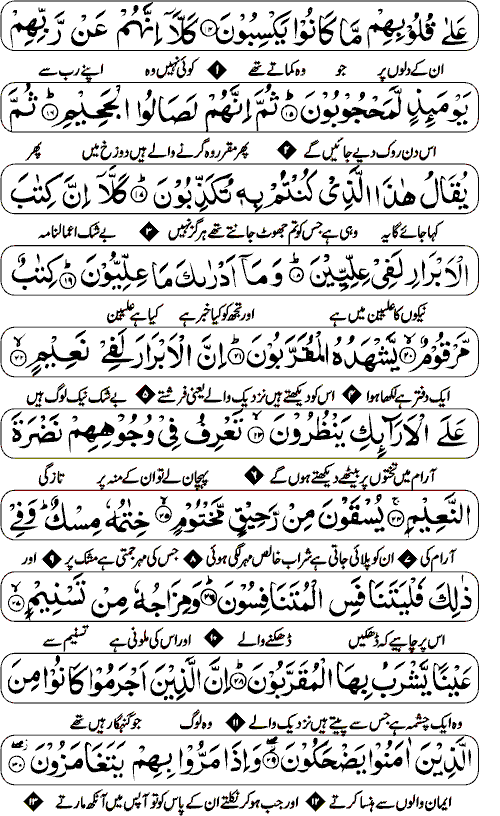 عَلٰى قُلُوْبِهِمْ مَّا كَانُوْا يَكْسِبُوْنَ ﴿۱۴﴾ كَلَّاۤ اِنَّهُمْ عَنْ رَّبِّهِمْ
ان کے دلوں پر جو وہ کماتے تھے ۱ کوئی نہیں وہ اپنے رب سے
يَوْمَئِذٍ لَّمَحْجُوْبُوْنَ ﴿۱۵﴾ ثُمَّ اِنَّهُمْ لَصَالُوا الْجَحِيْمِ ﴿۱۶﴾ ثُمَّ
اس دن روک دیے جائیں گے ۲ پھر مقرر وہ گرنے والے ہیں دوزخ میں پھر
يُقَالُ هٰذَا الَّذِىْ كُنْتُمْ بِهٖ تُكَذِّبُوْنَ ﴿۱۷﴾ كَلَّاۤ اِنَّ كِتٰبَ
کہا جائے گا یہ وہی ہے جس کو تم جھوٹ جانتے تھے ہرگز نہیں ۳ بے شک اعمالنامہ
الْاَبْرَارِ لَفِىْ عِلِّيِّيْنَ ﴿۱۸﴾ وَمَاۤ اَدْرٰىكَ مَا عِلِّيُّوْنَ ﴿۱۹﴾ كِتٰبٌ
نیکوں کا علیین میں ہے اور تجھ کو کیا خبر ہے کیا ہے علیین
مَّرْقُوْمٌ ﴿۲۰﴾ يَّشْهَدُهُ الْمُقَرَّبُوْنَ ﴿۲۱﴾ اِنَّ الْاَبْرَارَ لَفِىْ نَعِيْمٍ ﴿۲۲﴾
ایک دفتر ہے لکھا ہوا ۴ اس کو دیکھتے ہیں نزدیک والے یعنی فرشتے ۵ بے شک نیک لوگ ہیں
عَلَى الْاَرَآئِكِ يَنْظُرُوْنَ ﴿۲۳﴾ تَعْرِفُ فِىْ وُجُوْهِهِمْ نَضْرَةَ
آرام میں تختوں پر بیٹھے دیکھتے ہوں گے ۶ پہچان لے تو ان کے منہ پر تازگی
النَّعِيْمِ ﴿۲۴﴾ يُسْقَوْنَ مِنْ رَّحِيْقٍ مَّخْتُوْمٍ ﴿۲۵﴾ خِتٰمُهٗ مِسْكٌ وَفِىْ
آرام کی ۷ ان کو پلائی جاتی ہے شراب خالص مہر لگی ہوئی ۸ جس کی مہر جمتی ہے مشک پر ۹ اور
ذٰلِكَ فَلْيَتَنَافَسِ الْمُتَنَافِسُوْنَ ﴿۲۶﴾ وَمِزَاجُهٗ مِنْ تَسْنِيْمٍ ﴿۲۷﴾
اس پر چاہیے کہ ڈھکیں ڈھکنے والے ۱۰ اور اس کی ملونی ہے تسنیم سے
عَيْنًا يَّشْرَبُ بِهَا الْمُقَرَّبُوْنَ ﴿۲۸﴾ اِنَّ الَّذِيْنَ اَجْرَمُوْا كَانُوْا مِنَ
وہ ایک چشمہ ہے جس سے پیتے ہیں نزدیک والے ۱۱ وہ لوگ جو گنہگار ہیں تھے
الَّذِيْنَ اٰمَنُوْا يَضْحَكُوْنَ ﴿۲۹﴾ وَاِذَا مَرُّوْا بِهِمْ يَتَغَامَزُوْنَ ﴿۳۰﴾
ایمان والوں سے ہنسا کرتے ۱۲ اور جب ہو کر نکلتے ان کے پاس کو تو آپس میں آنکھ مارتے ۱۳